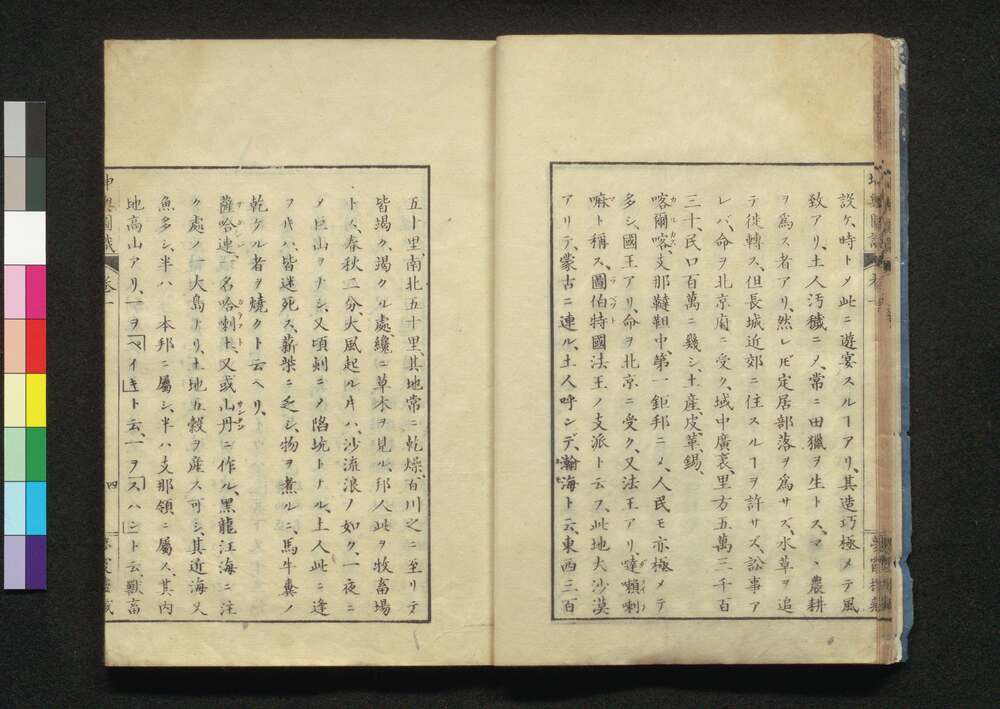 設ケ、時トメ此ニ遊宴スルヿアリ、其造巧極メテ風
致アリ、土人汚穢ニメ、常ニ田獵ヲ生トス、マヽ農耕
ヲ爲ス者アリ、然レ𪜈定居部落ヲ爲サズ、水草ヲ追
テ徙轉ス、但長城近郊ニ住スルヿヲ許サズ、訟事ア
レバ、命ヲ北京府ニ受ク、域中廣袤、里方五萬三千百
三十、民口百萬ニ幾シ、土産、皮革、錫、
喀爾喀、支那韃靼中、第一鉅邦ニメ、人民モ亦極メテ
多シ、國王アリ、命ヲ北京ニ受ク、又法王アリ、噠嚹喇
嘛ト稱ス、圖伯特國法王ノ支派ト云フ、此地大沙漠
アリテ、蒙古ニ連ル、土人呼ンデ、瀚海ト云、東西三百
五十里、南北五十里、其地常ニ乾燥、百川之ニ至リテ
皆竭ク、竭クル處、纔ニ草木ヲ見ル、邦人此ヲ牧畜場
トス、春秋二分、大風起ル片ハ、沙流浪ノ如ク、一夜ニ
メ巨山ヲナシ、又頃刻ニメ陷坑トナル、土人此ニ逢
ヲ片ハ、皆迷死ス、薪柴ニ乏シ、物ヲ煮ルニ、馬牛糞ノ
乾ケル者ヲ燒クト云ヘリ、
薩哈連、名哈喇土、又或山丹ニ作ル、黑龍江海ニ注
ク處ノ一大島ナリ、土地五穀ヲ産ス可シ、其近海又
魚多シ、半ハ 本邦ニ屬シ、半ハ支那領ニ屬ス、其內
地高山アリ、一ヲベイキト云、一ヲスハント云、獸畜
四